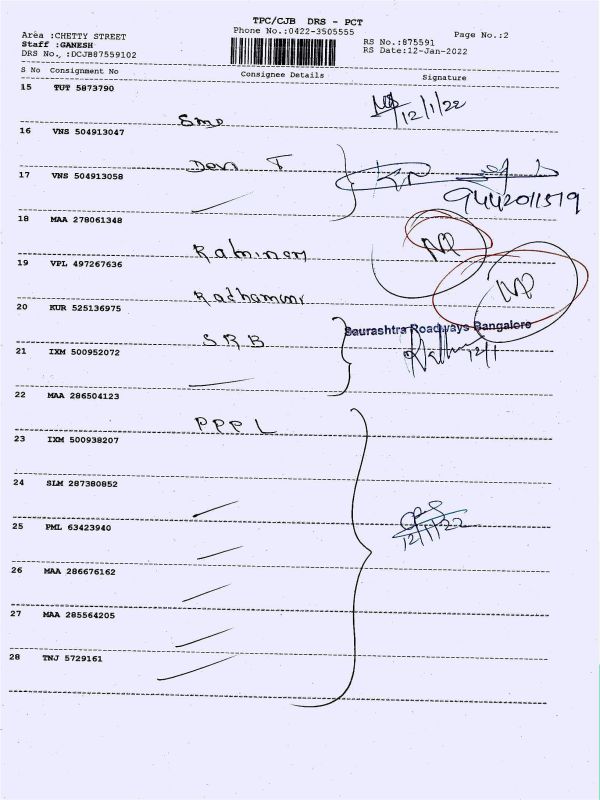 TPC/CJB DRS - PCT
Area :CHETTY STREET
Phone No.:0422-3505555
Page No.:2
Staff :GANESH
RS No.:875591
DRS No., :DCJB87559102
RS Date:12-Jan-2022
S No Consignment No Consignee Details Signature
15 TUT 5873790
Sms
12/1/22
16 VNS 504913047
Devi T
17 VNS 504913058
9442011579
18 MAA 278061348
Ratninam
NP
19 VPL 497267636
Radhamani
NP
20 KUR 525136975
SRB
Saurashtra Roadways Bangalore
12/1
21 IXM 500952072
22 MAA 286504123
PPPL
23 IXM 500938207
24 SLM 287380852
25 PML 63423940
12/1/22
26 MAA 286676162
27 MAA 285564205
28 TNJ 5729161